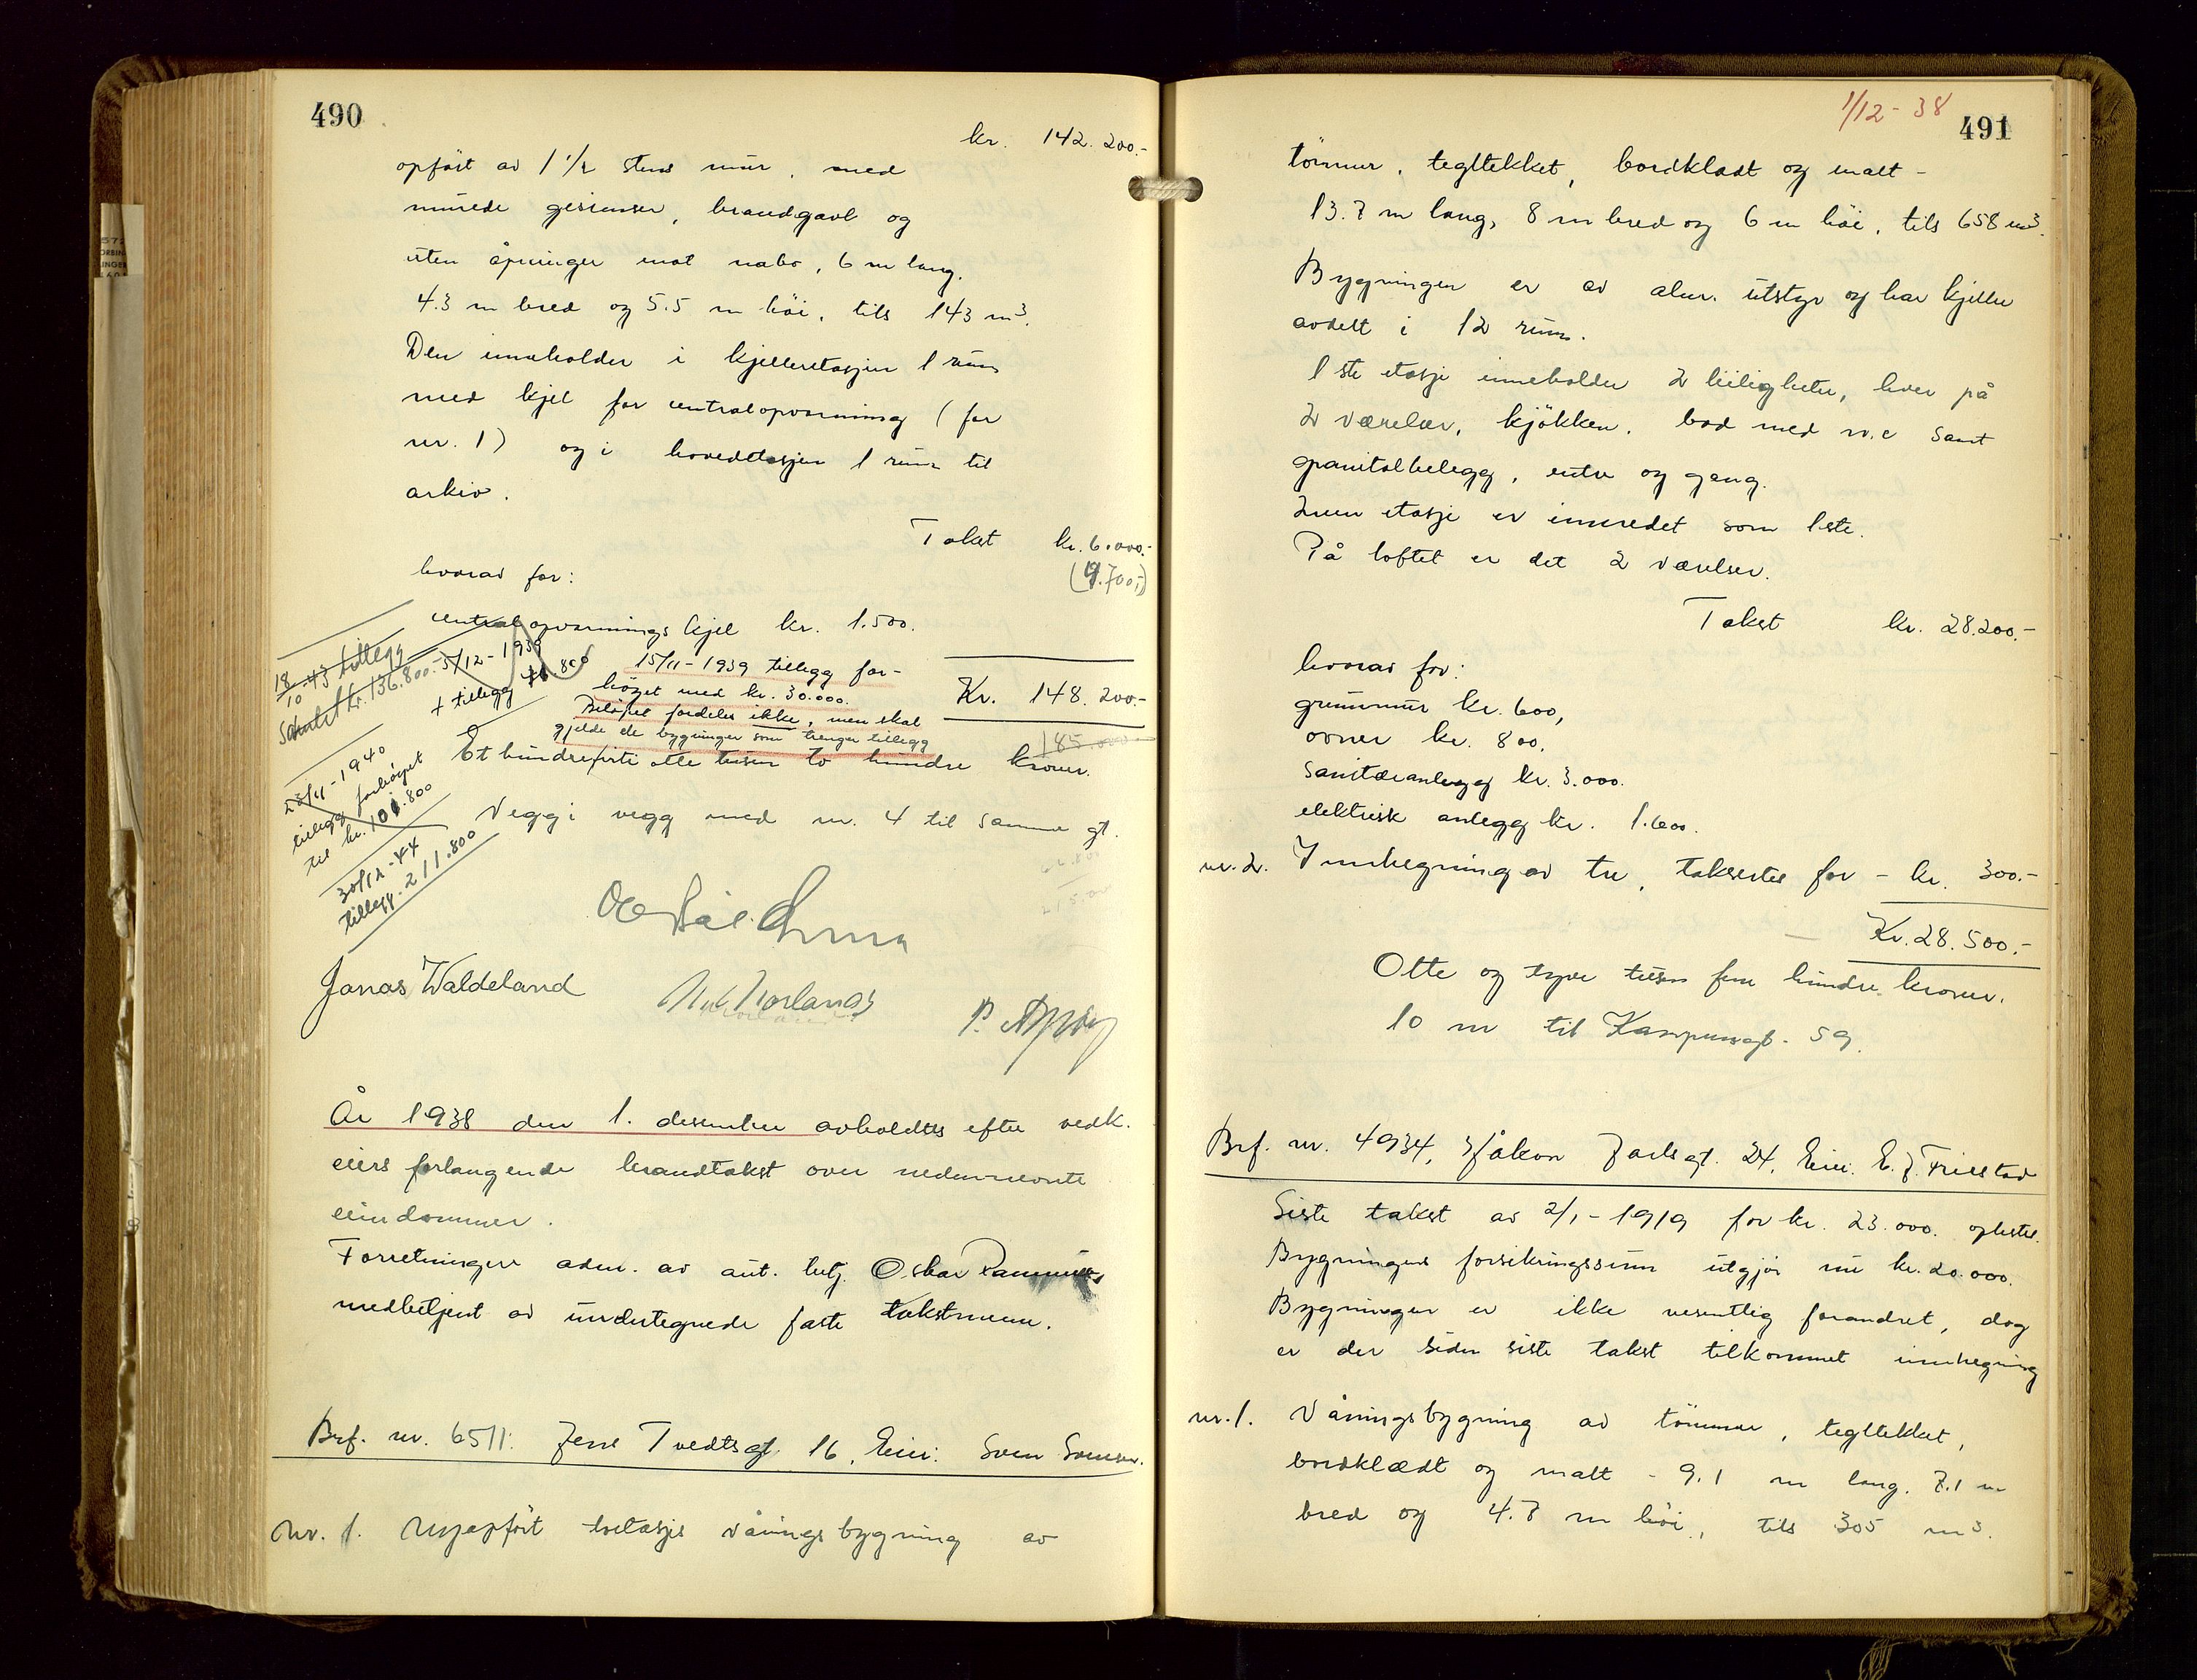 490
kr. 142.200.-
opført av 1 1/2 stens mur, med
murede gesimser, brandgavl og
uten åpninger mot nabo, 6 m lang,
4.3 m bred og 5.5 m høi, tils 143 m³.
Den inneholder i kjelleretasjen 1 rum
med kjel for centralopvarming (for
nr. 1) og i hovedetasjen 1 rum til
arkiv.
Takst kr. 6.000.-
(9.700,-)
hvorav for:
centralopvarmings kjel kr. 1.500.
18/10-43 tillegg
Samlet kr. 136.800.-
5/12-1939
+ tillegg
15/11-1939 tillegg for-
høyet med kr. 30.000.
Beløpet fordeles ikke, men skal
gjelde de bygninger som trenger tillegg
Kr. 148.200.-
185.000
Et hundreførti otte tusen to hundre kroner.
23/11-1940
tillegg forhøyet
til kr. 101.800
30/12-44
tillegg. 211.800
Vegg i vegg med nr. 4 til samme gt.
Jonas Waldeland
År 1938 den 1. desember avholdtes efter vedk.
eiers forlangende brandtakst over nedennevnte
eiendommer.
Forretningen adm. av aut. betj. Oskar
medbetjent av undertegnede faste takstmenn.
Brf. nr. 6511. Jens Tvedtsgt. 16, Eier: Sven Svensen.
Nr. 1. Nyopført toetasjes våningsbygning av
1/12-38
491
tømmer, tegltekket, bordkladt og malt -
13.7 m lang, 8 m bred og 6 m høi, tils 658 m³.
Bygningen er av alm. utstyr og har kjeller
avdelt i 12 rum.
1ste etasje inneholder 2 leiligheter, hver på
2 værelser, kjøkken, bad med w.c samt
granitolbelegg, entre og gang.
2nen etasje er innredet som 1ste.
På loftet er det 2 værelser.
Takst kr. 28.200.-
hvorav for:
grunnmur kr. 600,
ovner kr. 800.
sanitæranlegg kr. 3.000.
elektrisk anlegg kr. 1.600.
nr. 2. Innhegning av tre, takseres for - kr. 300.-
Kr. 28.500.-
Otte og tyve tusen fem hundre kroner.
10 m til Kampensgt. 59.
Brf. nr. 4934, Håkon Jarlsgt. 24, Eier: E. J. Friestad
Siste takst av 2/1-1919 for kr. 23.000. oplestes.
Bygningens forsikringssum utgjør nu kr. 20.000.
Bygningen er ikke vesentlig forandret, dog
er der siden siste takst tilkommet innhegning
nr. 1. Våningsbygning av tømmer, tegltekket,
bordklædt og malt - 9.1 m lang, 7.1 m
bred og 4.7 m høi, tils 305 m³.